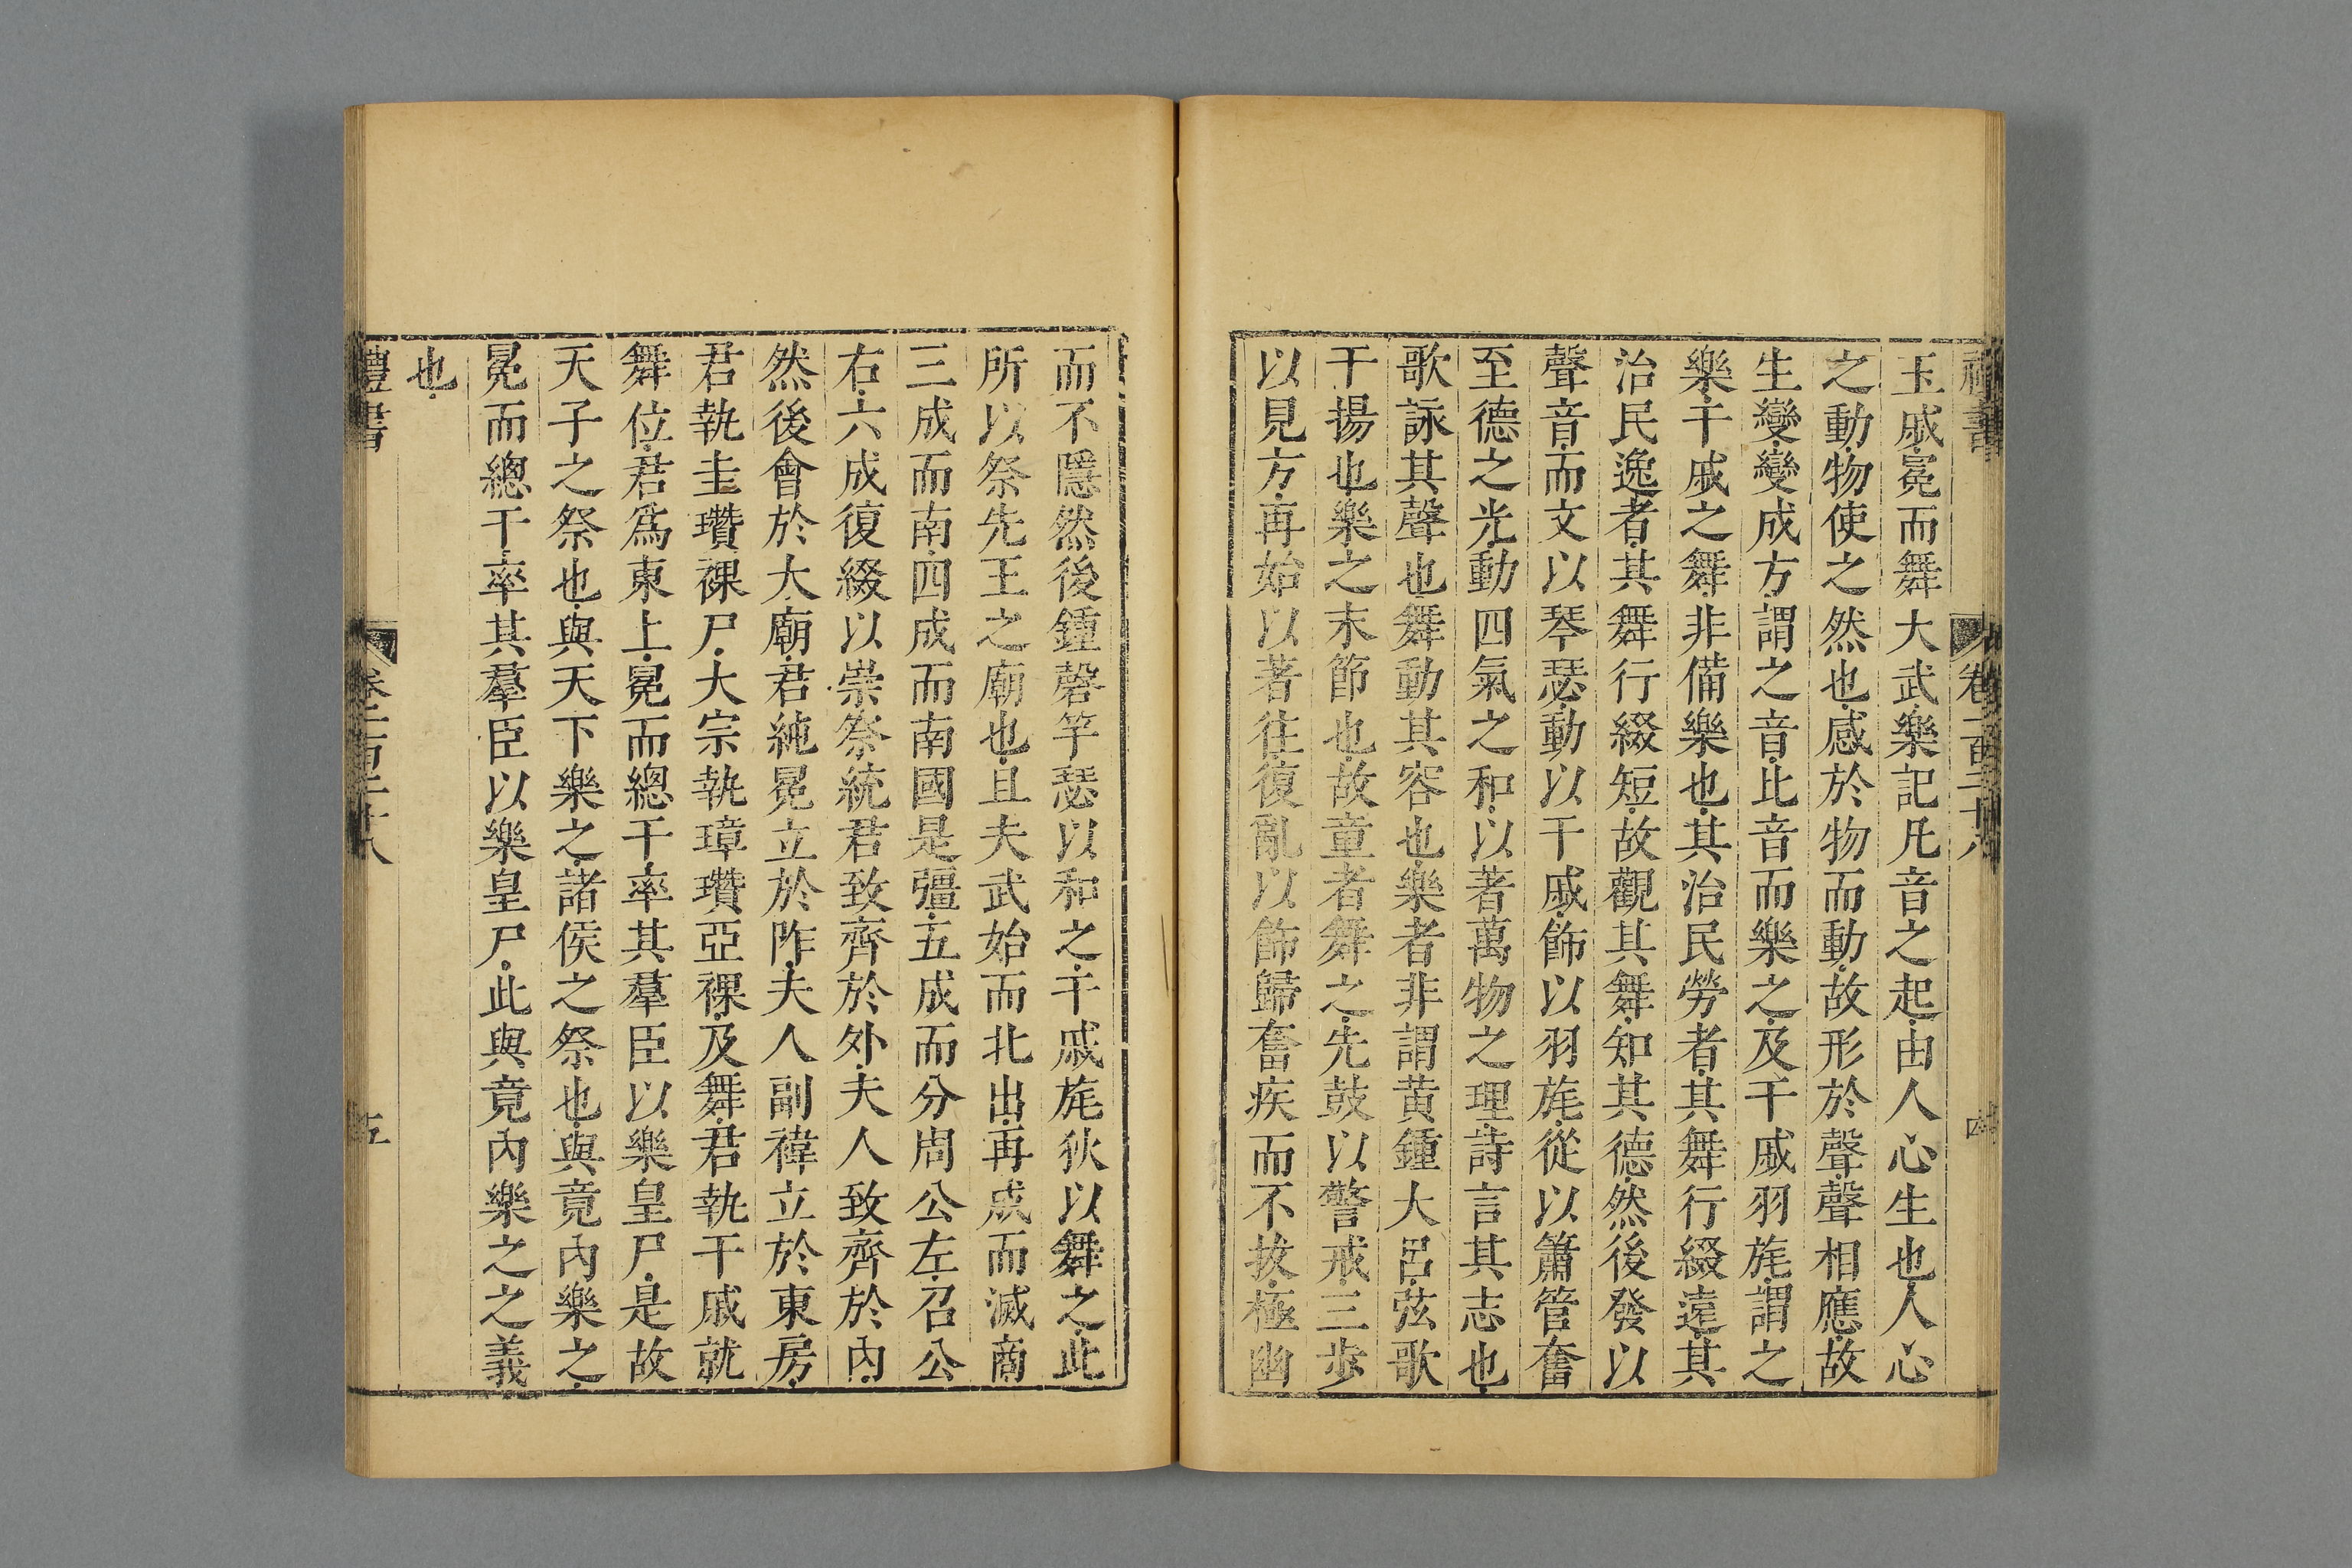 禮書 卷一百二十八 四
玉戚冕而舞大武樂記凡音之起由人心生也人心
之動物使之然也感於物而動故形於聲聲相應故
生變變成方謂之音比音而樂之及干戚羽旄謂之
樂干戚之舞非備樂也其治民勞者其舞行綴遠其
治民逸者其舞行綴短故觀其舞知其德然後發以
聲音而文以琴瑟動以干戚飾以羽旄從以簫管奮
至德之光動四氣之和以著萬物之理詩言其志也
歌詠其聲也舞動其容也樂者非謂黃鍾大呂弦歌
干揚也樂之末節也故童者舞之先鼓以警戒三步
以見方再始以著往復亂以飾歸奮疾而不拔極幽
而不隱然後鍾磬竽瑟以和之干戚旄狄以舞之此
所以祭先王之廟也且夫武始而北出再成而滅商
三成而南四成而南國是彊五成而分周公左召公
右六成復綴以崇祭統君致齊於外夫人致齊於內
然後會於大廟君純冕立於阼夫人副褘立於東房
君執圭瓚裸尸大宗執璋瓚亞裸及舞君執干戚就
舞位君爲東上冕而總干率其羣臣以樂皇尸是故
天子之祭也與天下樂之諸侯之祭也與竟內樂之
冕而總干率其羣臣以樂皇尸此與竟內樂之之義
也
禮書 卷一百二十八 五